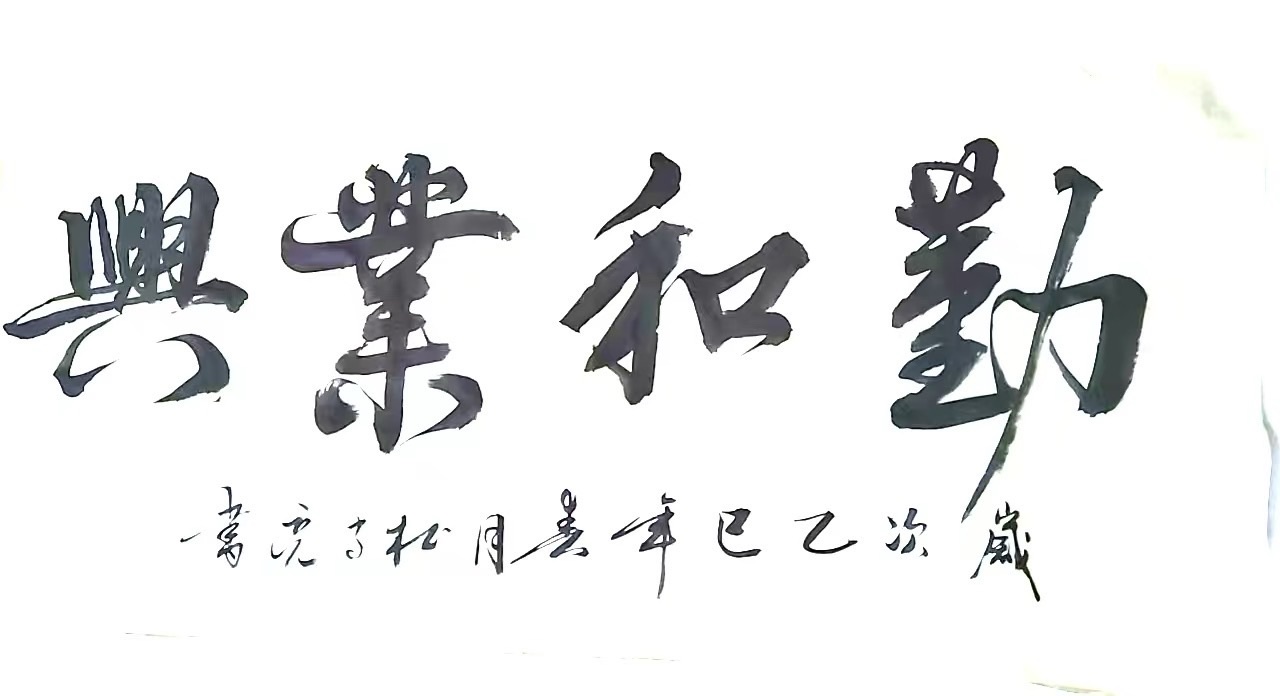 勤和業興
歲次乙巳年春月松書